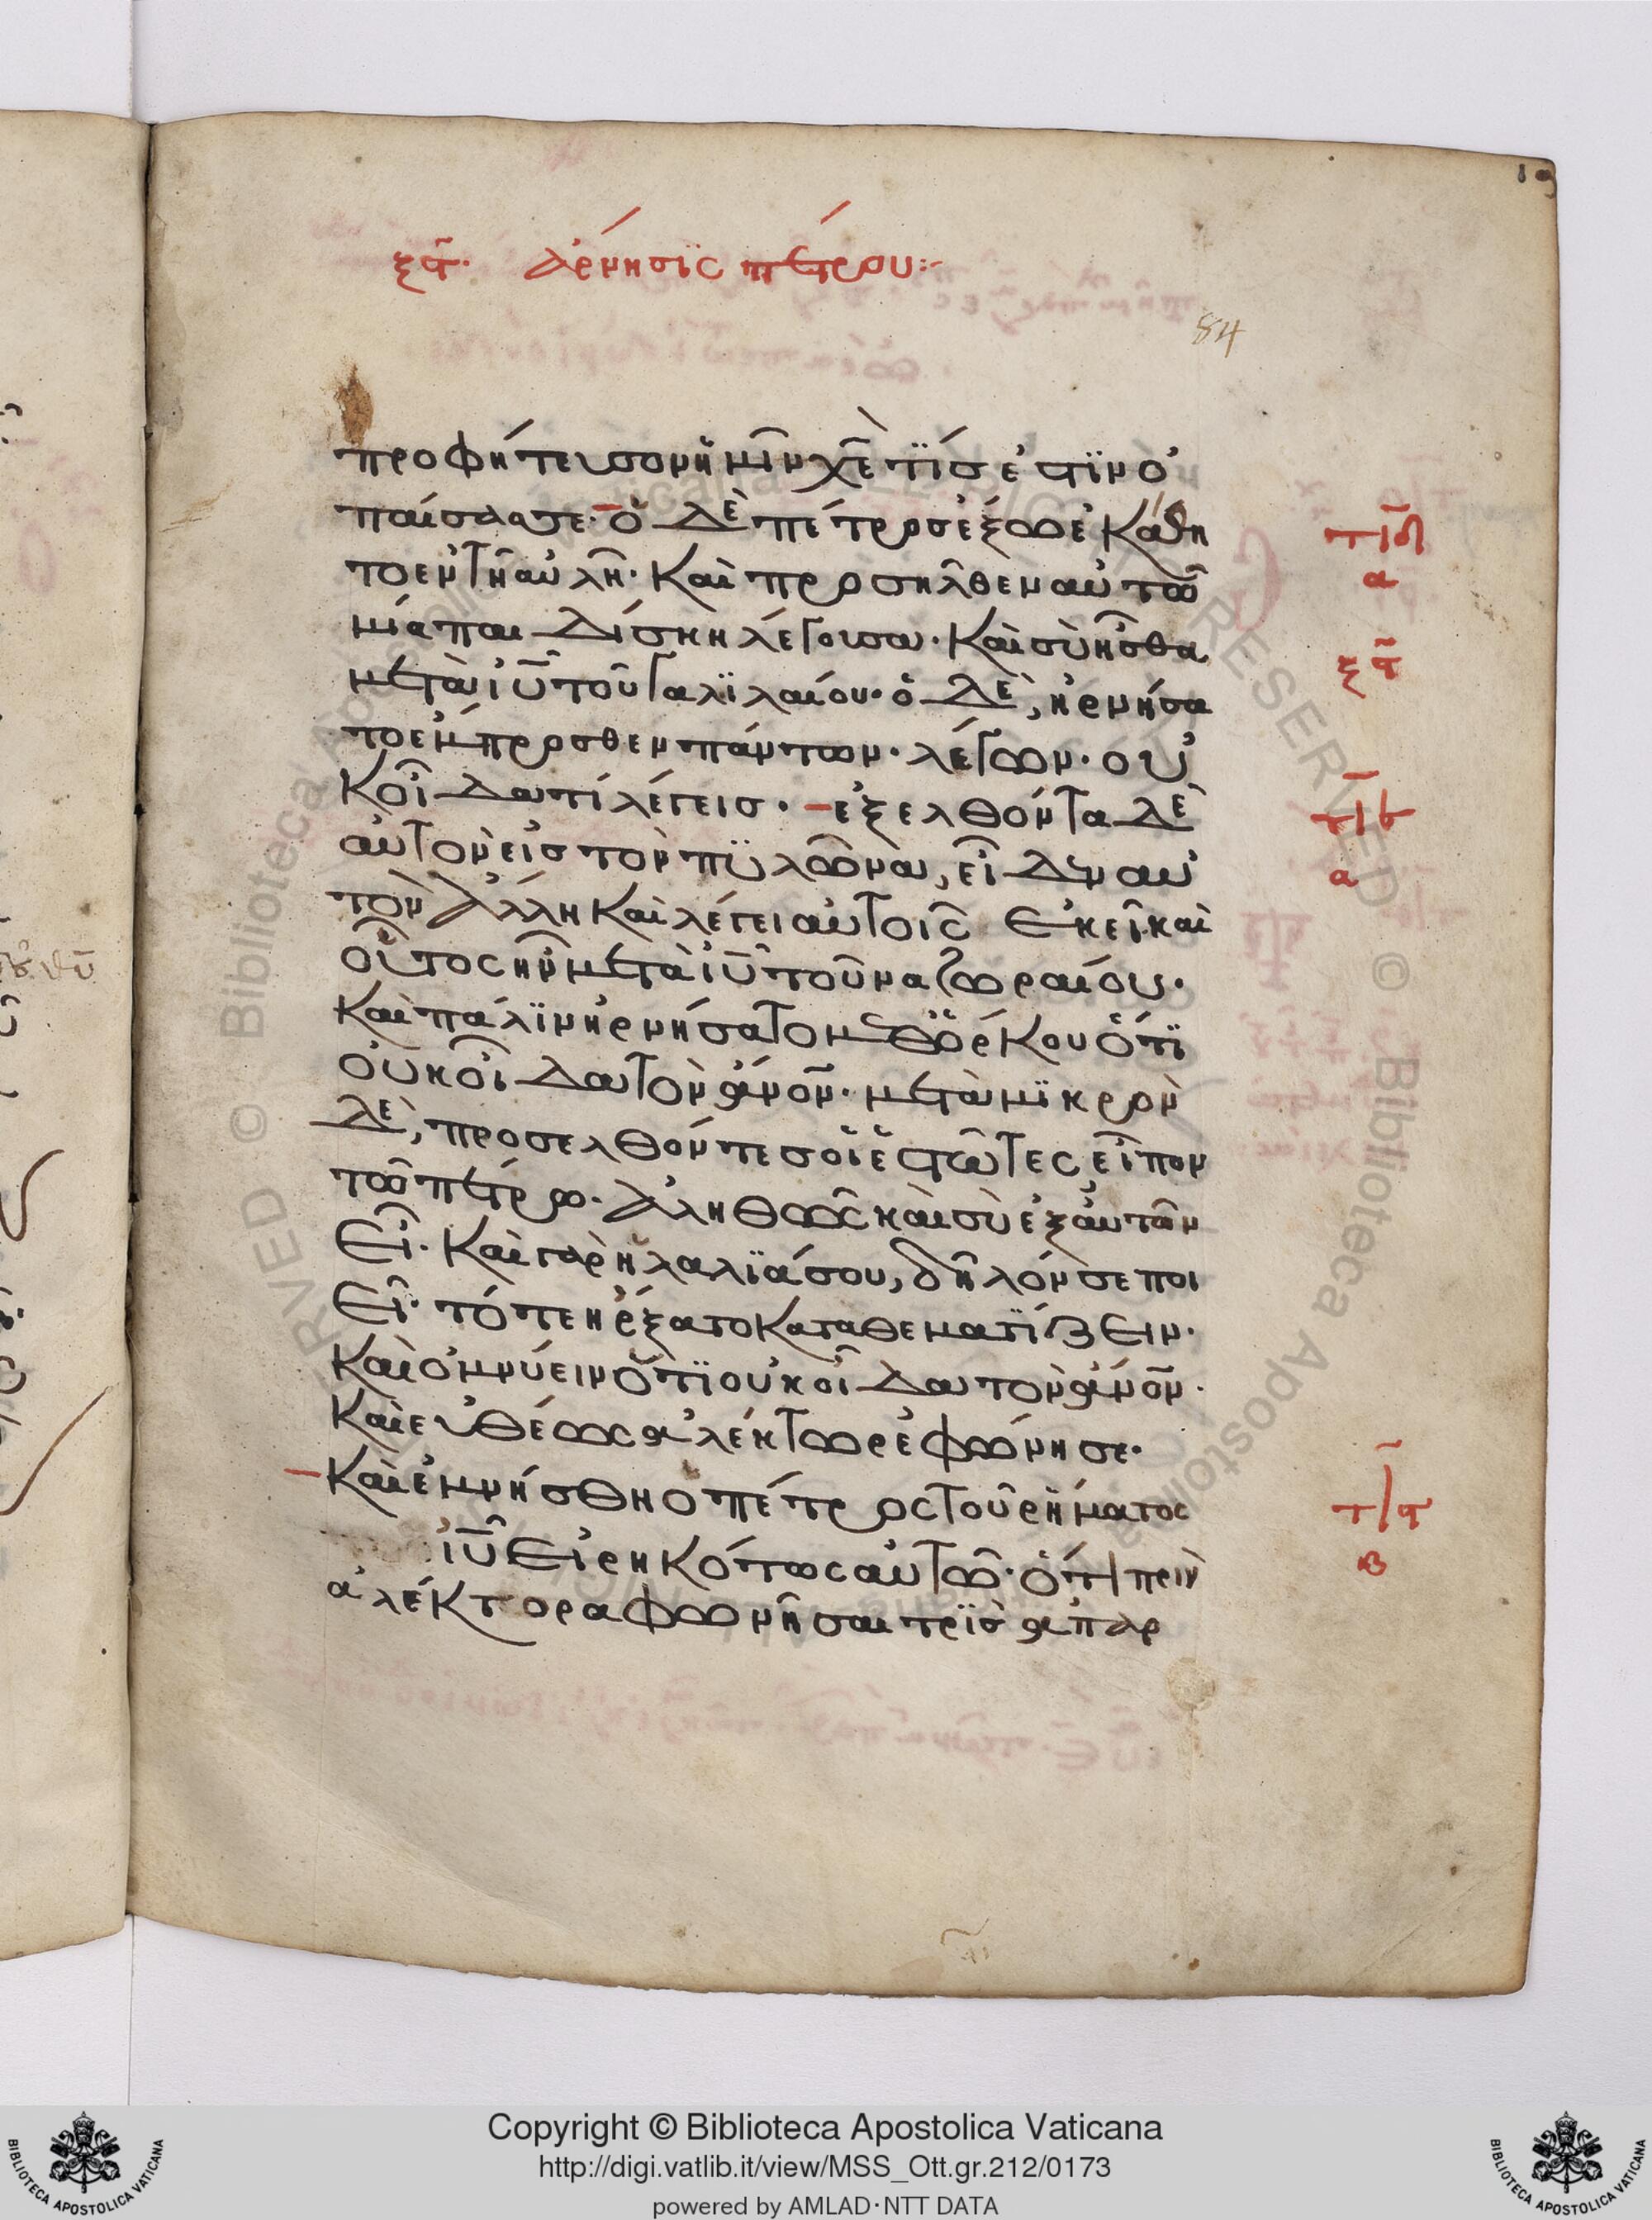 ξϛ̄· ἄρνησϊς πέτρου:-
84
προφήτευσον ἡμῖν χ̅ε̅ τΐς ἐστϊν ὁ
παίσας σε· ὁ δὲ πέτρος ἔξω ἐκάθη
το ἐν τῆ αὐλῆ· καὶ προσῆλθεν αὐτῶ
μία παιδίσκη λέγουσα· καὶ σὺ ἦσθα
μετὰ ἰ̅υ̅ τοῦ γαλϊλαίου· ὁ δὲ, ἠρνήσα
το ἔμπροσθεν πάντων· λέγων· οὐ
κ οἶδα τί λέγεις· ἐξελθόντα δὲ
αὐτὸν εἰς τὸν πϋλῶνα, εἶδεν αὐ
τὸν ἄλλη καὶ λέγει αὐτοῖς ἐκεῖ· καὶ
οὗτος ἦν μετὰ ἰ̅υ̅ τοῦ ναζωραίου·
καὶ πάλϊν ἠρνήσατο μεθ ὅρκου ὅτϊ
οὐκ οἶδα τὸν ἄν̅ο̅ν̅· μετὰ μϊκρὸν
δὲ, προσελθόντες οἱ ἑστῶτες εἶπον
τῶ πέτρω· ἀληθῶς καὶ σὺ ἐξ αὐτῶν
εἶ· καὶ γὰρ ἡ λαλϊά σου, δῆλόν σε ποι
εῖ· τότε ἤρξατο καταθεματίζειν·
καὶ ὀμνύειν ὅτϊ οὐκ οἶδα τὸν ἄν̅ο̅ν̅·
καὶ εὐθέως ἀλέκτωρ ἐφώνησε·
καὶ ἐμνήσθη ὁ πέτρος τοῦ ῥήματος
ἰ̅υ̅ εἰρηκότος αὐτῶ· ὅτι πρὶν
ἀλέκτορα φωνῆσαι τρϊς ἀπαρ
τιδ̄
α
ξϛ̄
τιε
α
τιϛ
β
Copyright © Biblioteca Apostolica Vaticana
http://digi.vatlib.it/view/MSS_Ott.gr.212/0173
powered by AMLAD·NTT DATA